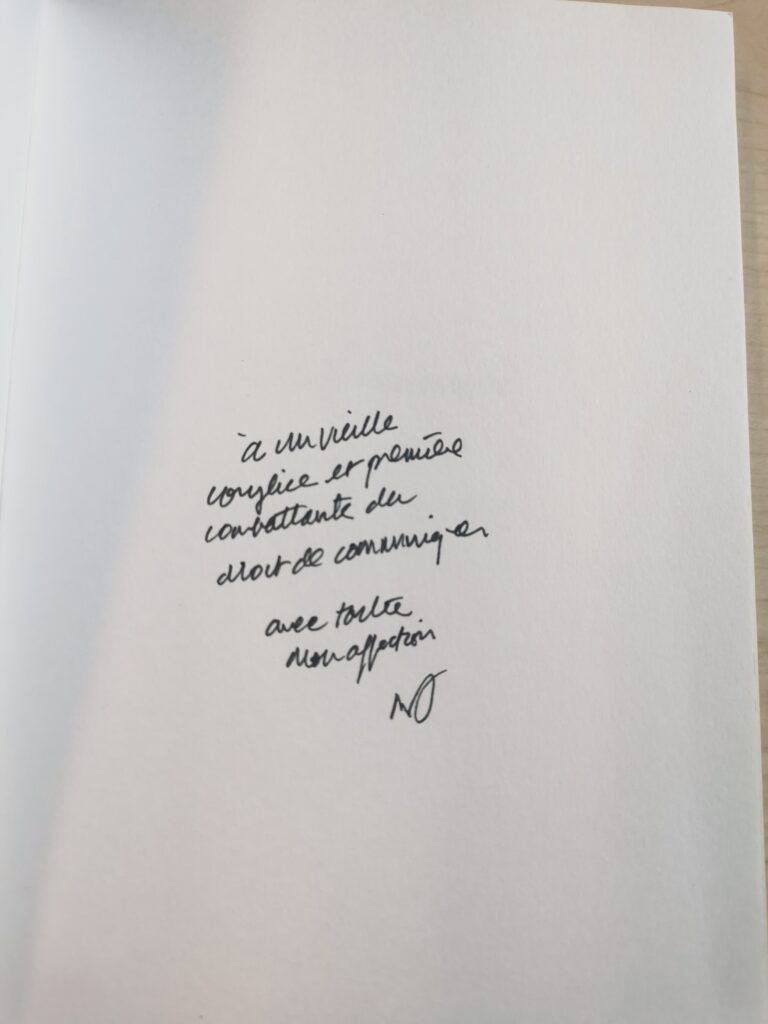 à un vieille
complice et première
combattante du
droit de communiquer
avec toute
mon affection